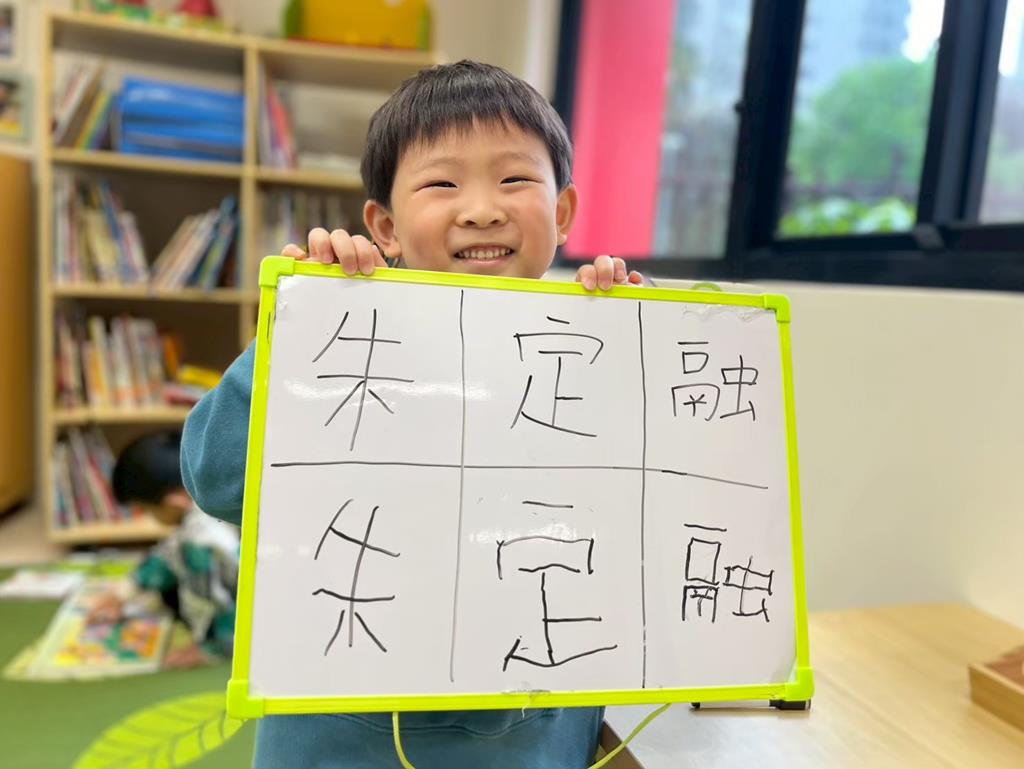 朱定融
朱定融